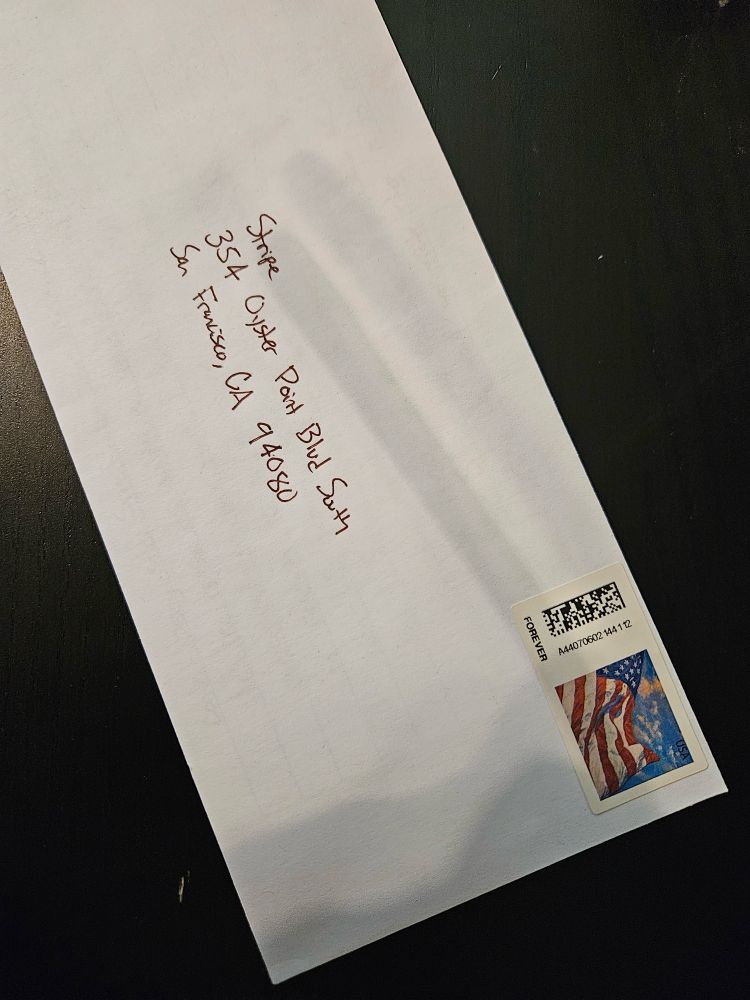 Stripe
354 Oyster Point Blvd South
San Francisco, CA 94080
FOREVER
A44070602144112
USA